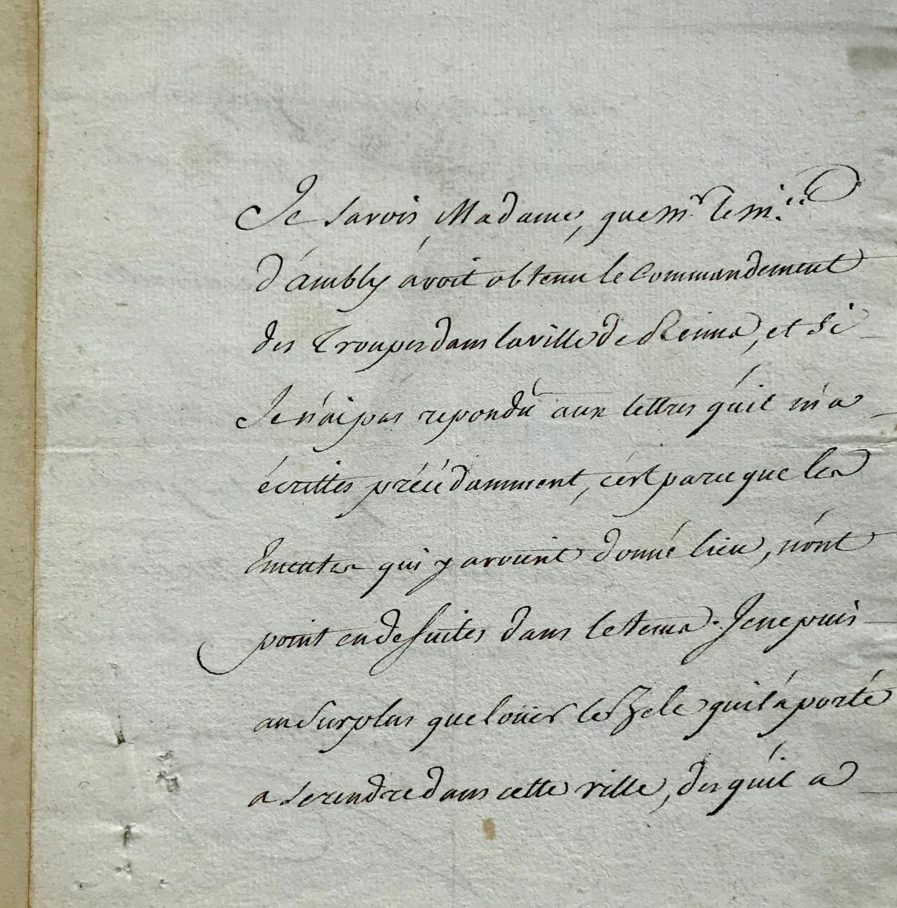 Je savois, Madame, que m.r le m.is
d'ambly avoit obtenu le Commandement
des Troupes dans la ville de Reims, et si
Je n'ai pas repondu aux lettres qu'il m'a
écrittes précédamment, c'est parce que les
Emeutes qui y avoient donné lieu, n'ont
point eu de suites dans le tems. Je ne puis
au surplus que loüer le Zele qu'il a porté
a se rendre dans cette ville, dès qu'il a